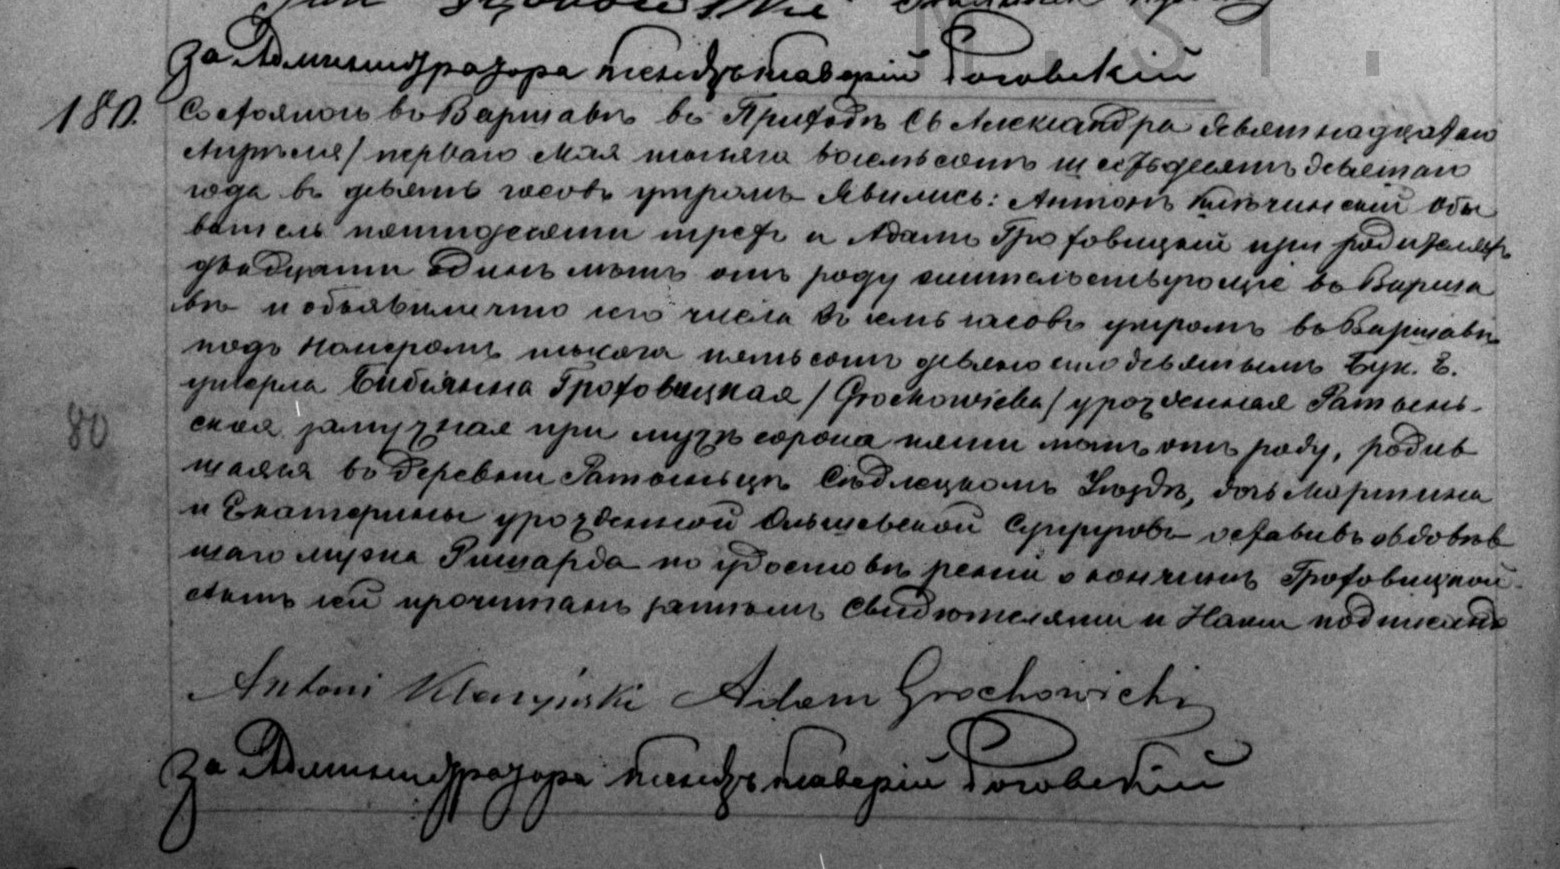 За Администратора Ксендзъ Ксаверій Роговскій
180. Состоялось въ Варшавѣ въ Приходѣ Св Александра девятнадцатаго
Апрѣля / перваго Мая тысяча восемьсотъ шестьдесятъ девятаго
года въ девять часовъ утромъ Явились: Антонъ Клечинскій Обы
ватель пятидесяти трехъ и Адамъ Гроховицкій при родителяхъ
двадцати одинъ лѣтъ отъ роду жительствующіе въ Варша
вѣ и объявили что сего числа въ семь часовъ утромъ въ Варшавѣ
подъ номеромъ тысяча пятьсотъ девяносто девятымъ Бук. Е.
умерла Бибіянна Гроховицкая / Grochowicka / урожденная Ратынь-
ская замужная при мужѣ сорока пяти лѣтъ отъ роду, родив
шаяся въ деревни Ратыньцѣ Сѣдлецкомъ Уѣздѣ, дочь Мартина
и Екатерины урожденной Ольшевской Супруговъ оставивъ овдовѣв
шаго мужа Ришарда по удостовѣреніи о кончинѣ Гроховицкой
Актъ сей прочитанъ затѣмъ Свидѣтелями и Нами подписанъ
Antoni Kleczyński Adam Grochowicki
За Администратора Ксендзъ Ксаверій Роговскій
80